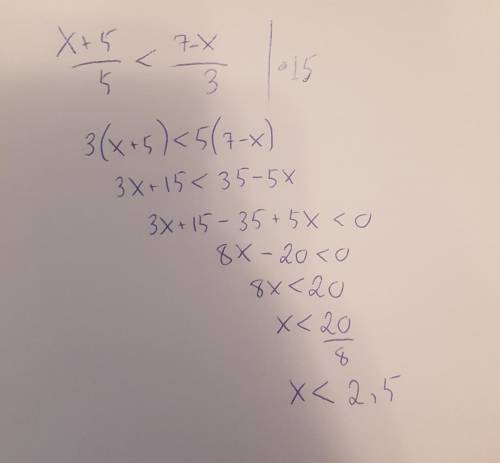 x+5/5 < 7-x/3 | •15
3(x+5)<5(7-x)
3x+15<35-5x
3x+15-35+5x<0
8x-20<0
8x<20
x<20/8
x<2,5